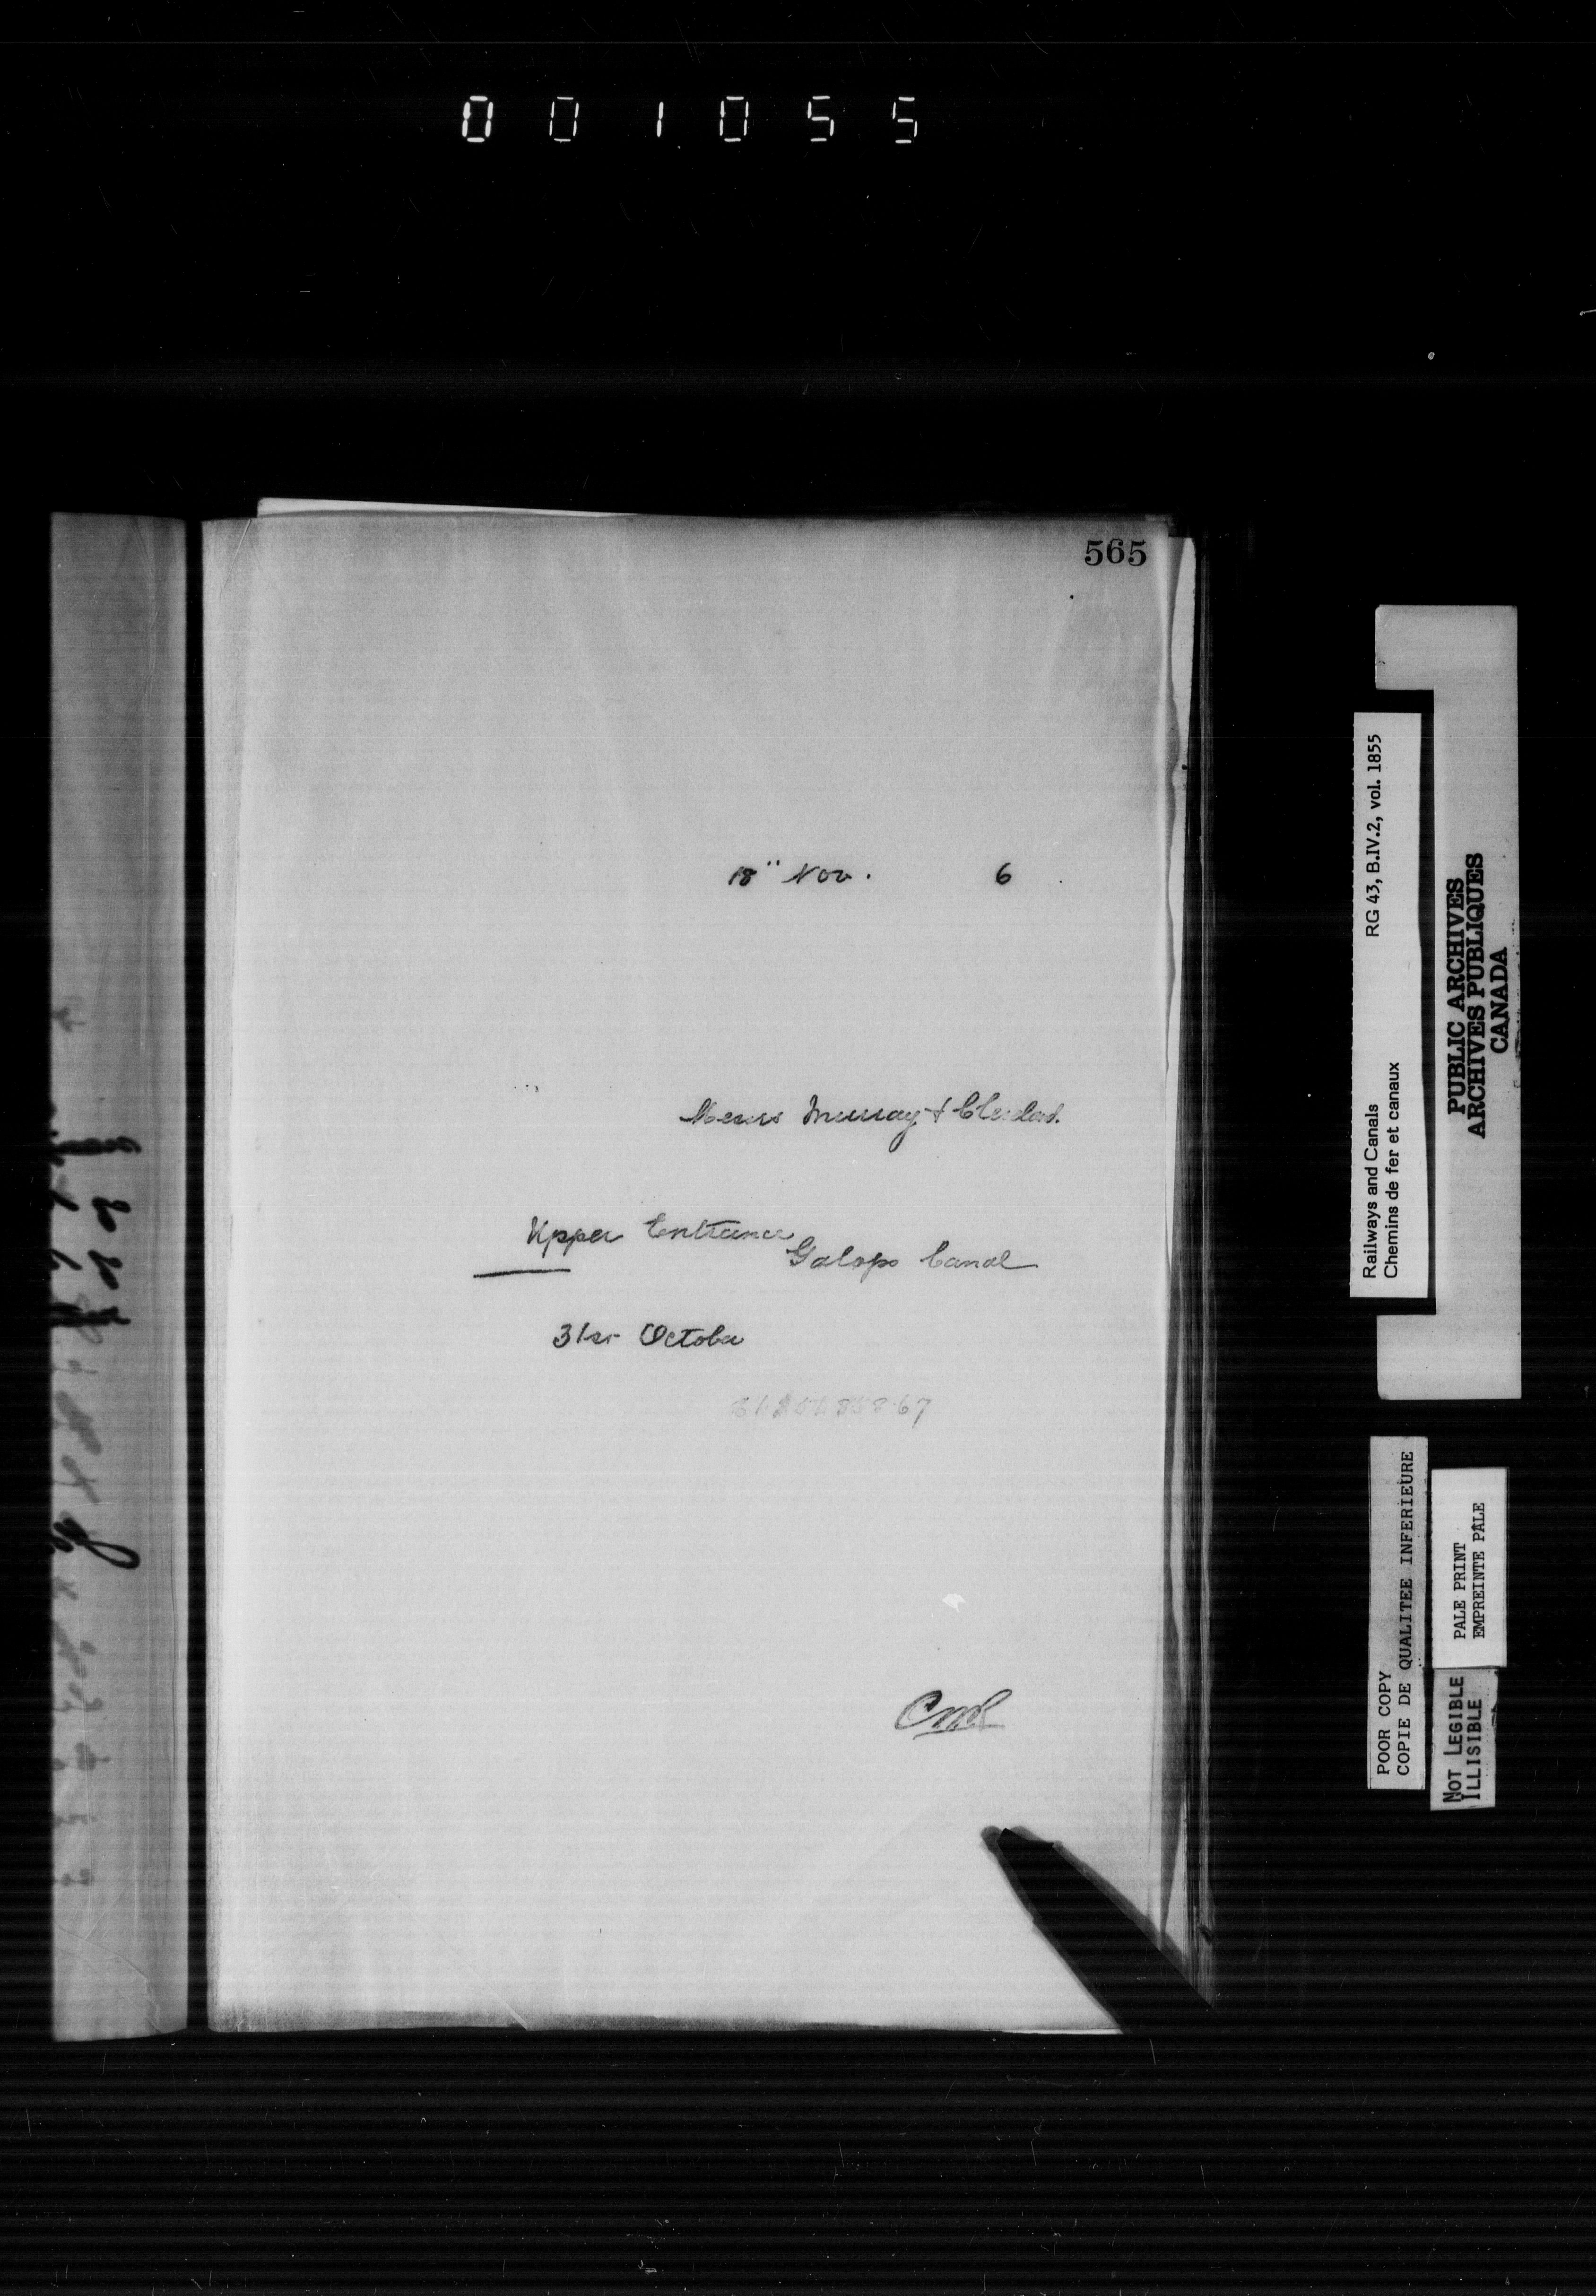 001055
565
18" Nov. 6
Messrs Murray &
Upper Entrance
Galops Canal
31st October
CMR
Railways and Canals RG 43, B.IV.2, vol. 1855
Chemins de fer et canaux
PUBLIC ARCHIVES
ARCHIVES PUBLIQUES
CANADA
POOR COPY
COPIE DE QUALITEE INFERIEURE
PALE PRINT
EMPREINTE PÂLE
NOT LEGIBLE
ILLISIBLE